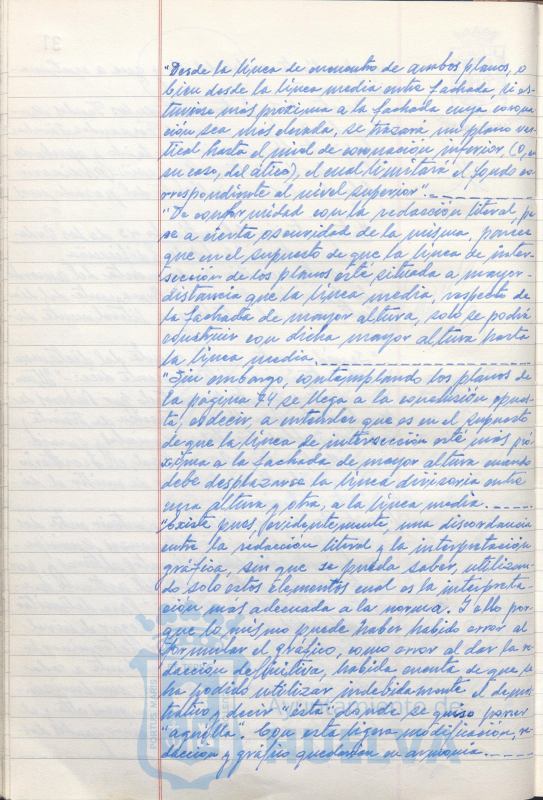 "Desde la línea de encuentro de ambos planos, o
bien desde la línea media entre fachada si es-
tuviese más próxima a la fachada cuya corona-
ción sea más elevada, se trazará un plano ver-
tical hasta el nivel de coronación inferior, (o, en
su caso, del ático), el cual limitará el fondo co-
rrespondiente al nivel superior".
"De conformidad con la redacción literal, pe-
se a cierta oscuridad de la misma, parece
que en el supuesto de que la línea de inter-
sección de los planos esté situada a mayor
distancia que la línea media, respecto de
la fachada de mayor altura, solo se podrá
construir con dicha mayor altura hasta
la línea media.
"Sin embargo, contemplando los planos de
la página 74 se llega a la conclusión opues-
ta, es decir, a entender que es en el supuesto
de que la línea de intersección esté más pró-
xima a la fachada de mayor altura cuando
debe desplazarse la línea divisoria entre
una altura y otra, a la línea media.
"Existe pues, evidentemente, una discordancia
entre la redacción literal y la interpretación
gráfica, sin que se pueda saber, utilizan-
do solo estos elementos cual es la interpreta-
ción mas adecuada a la norma. Y ello por-
que lo mismo puede haber habido error al
formular el gráfico, como error al dar la re-
dacción definitiva, habida cuenta de que se
ha podido utilizar indebidamente el demos-
trativo, decir "ésta" donde se quiso poner
"aquella". Con esta ligera modificación, re-
dacción y gráfico quedarían en armonía.
Ayuntamiento de
PORTUS MARIS